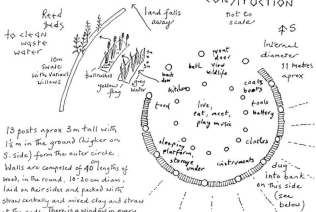 CONSTRUCTION
not to
scale
Reed
beds
to clean
waste
water
land falls
away
10m
swale
with various
willows
bullrushes
yellow
flag
grey
water
S
Internal
diameter
11 metres
aprox
front
door
bath view
wildlife
wash
down
kitchen
food
coats
boots
tools
battery
live,
eat, meet,
play music
clothes
sleeping
platform,
storage
under
instruments
dug
into bank
on this side
(see
below)
13 posts aprox 3m tall with
1½ m in the ground (higher on
S. side) form the outer circle.
Walls are composed of 40 cm lengths of
wood, in the round, 10-20 cm diam.
laid on their sides and packed with
straw centrally and mixed clay and straw
at the ends. There is a window in every